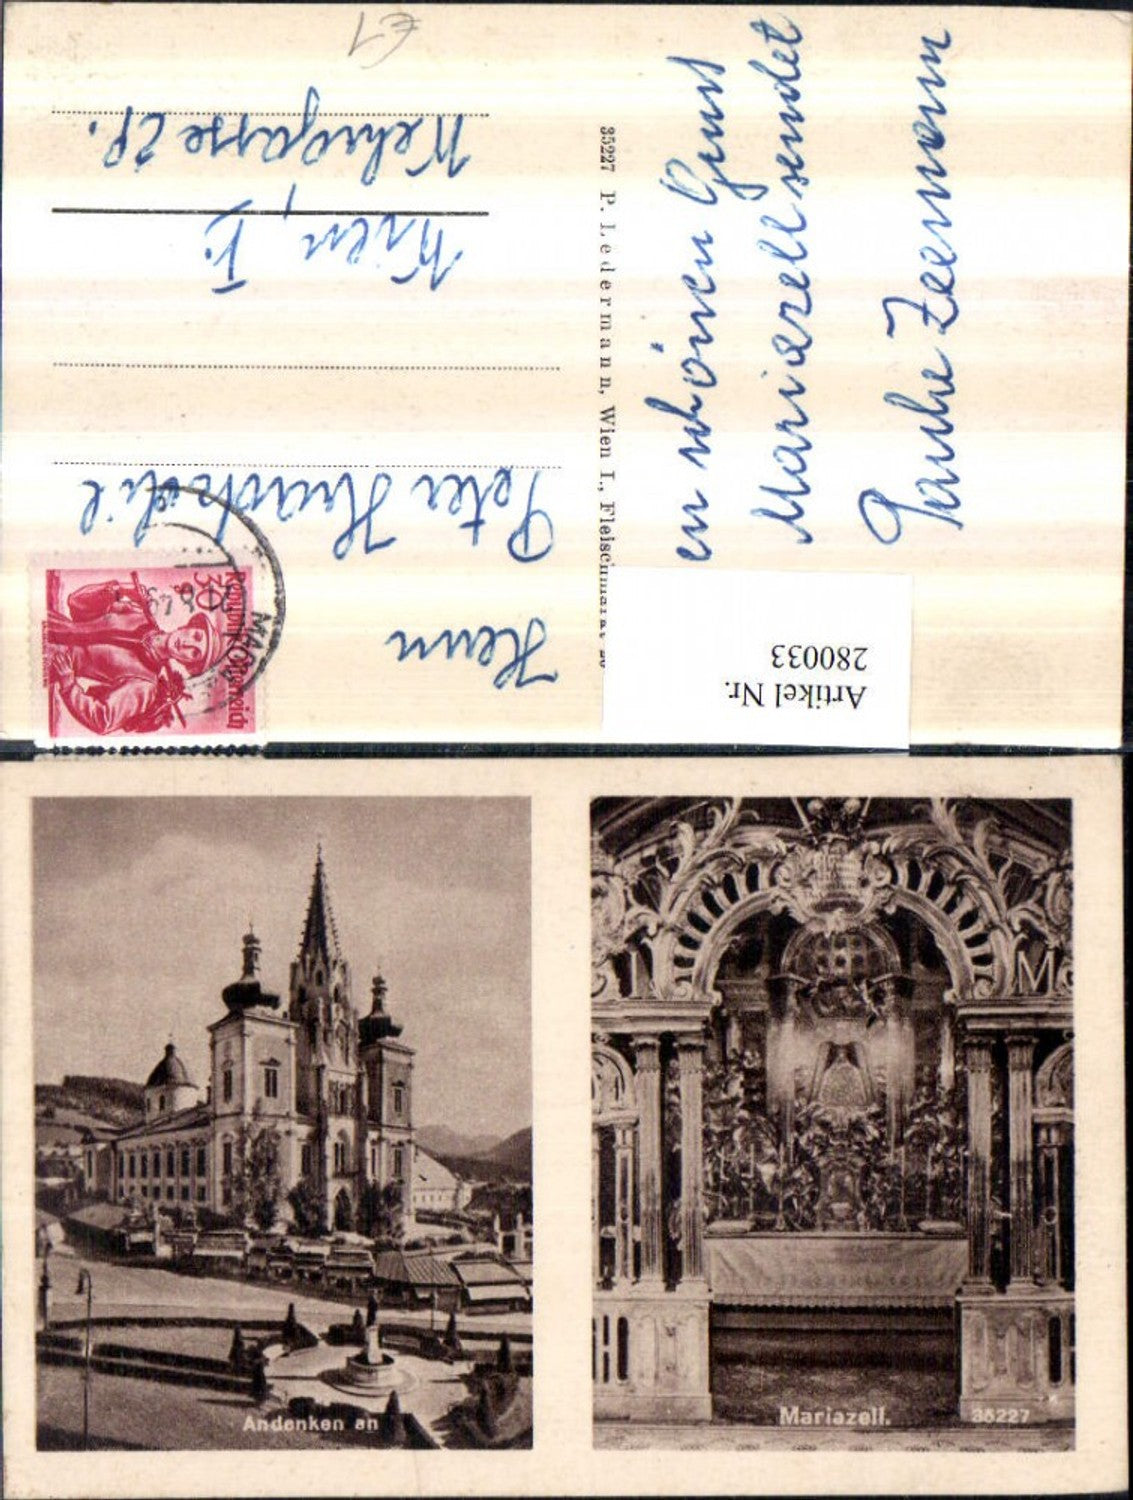 €1
Herrn
Peter
Wien, V.
Wehrgasse 28.
35227 P. Ledermann, Wien I., Fleischmarkt 20
en schönen Gruss
Mariazell sendet
Zeemann
Artikel Nr.
280033
30
Republik Österreich
Andenken an
Mariazell.
35227
M